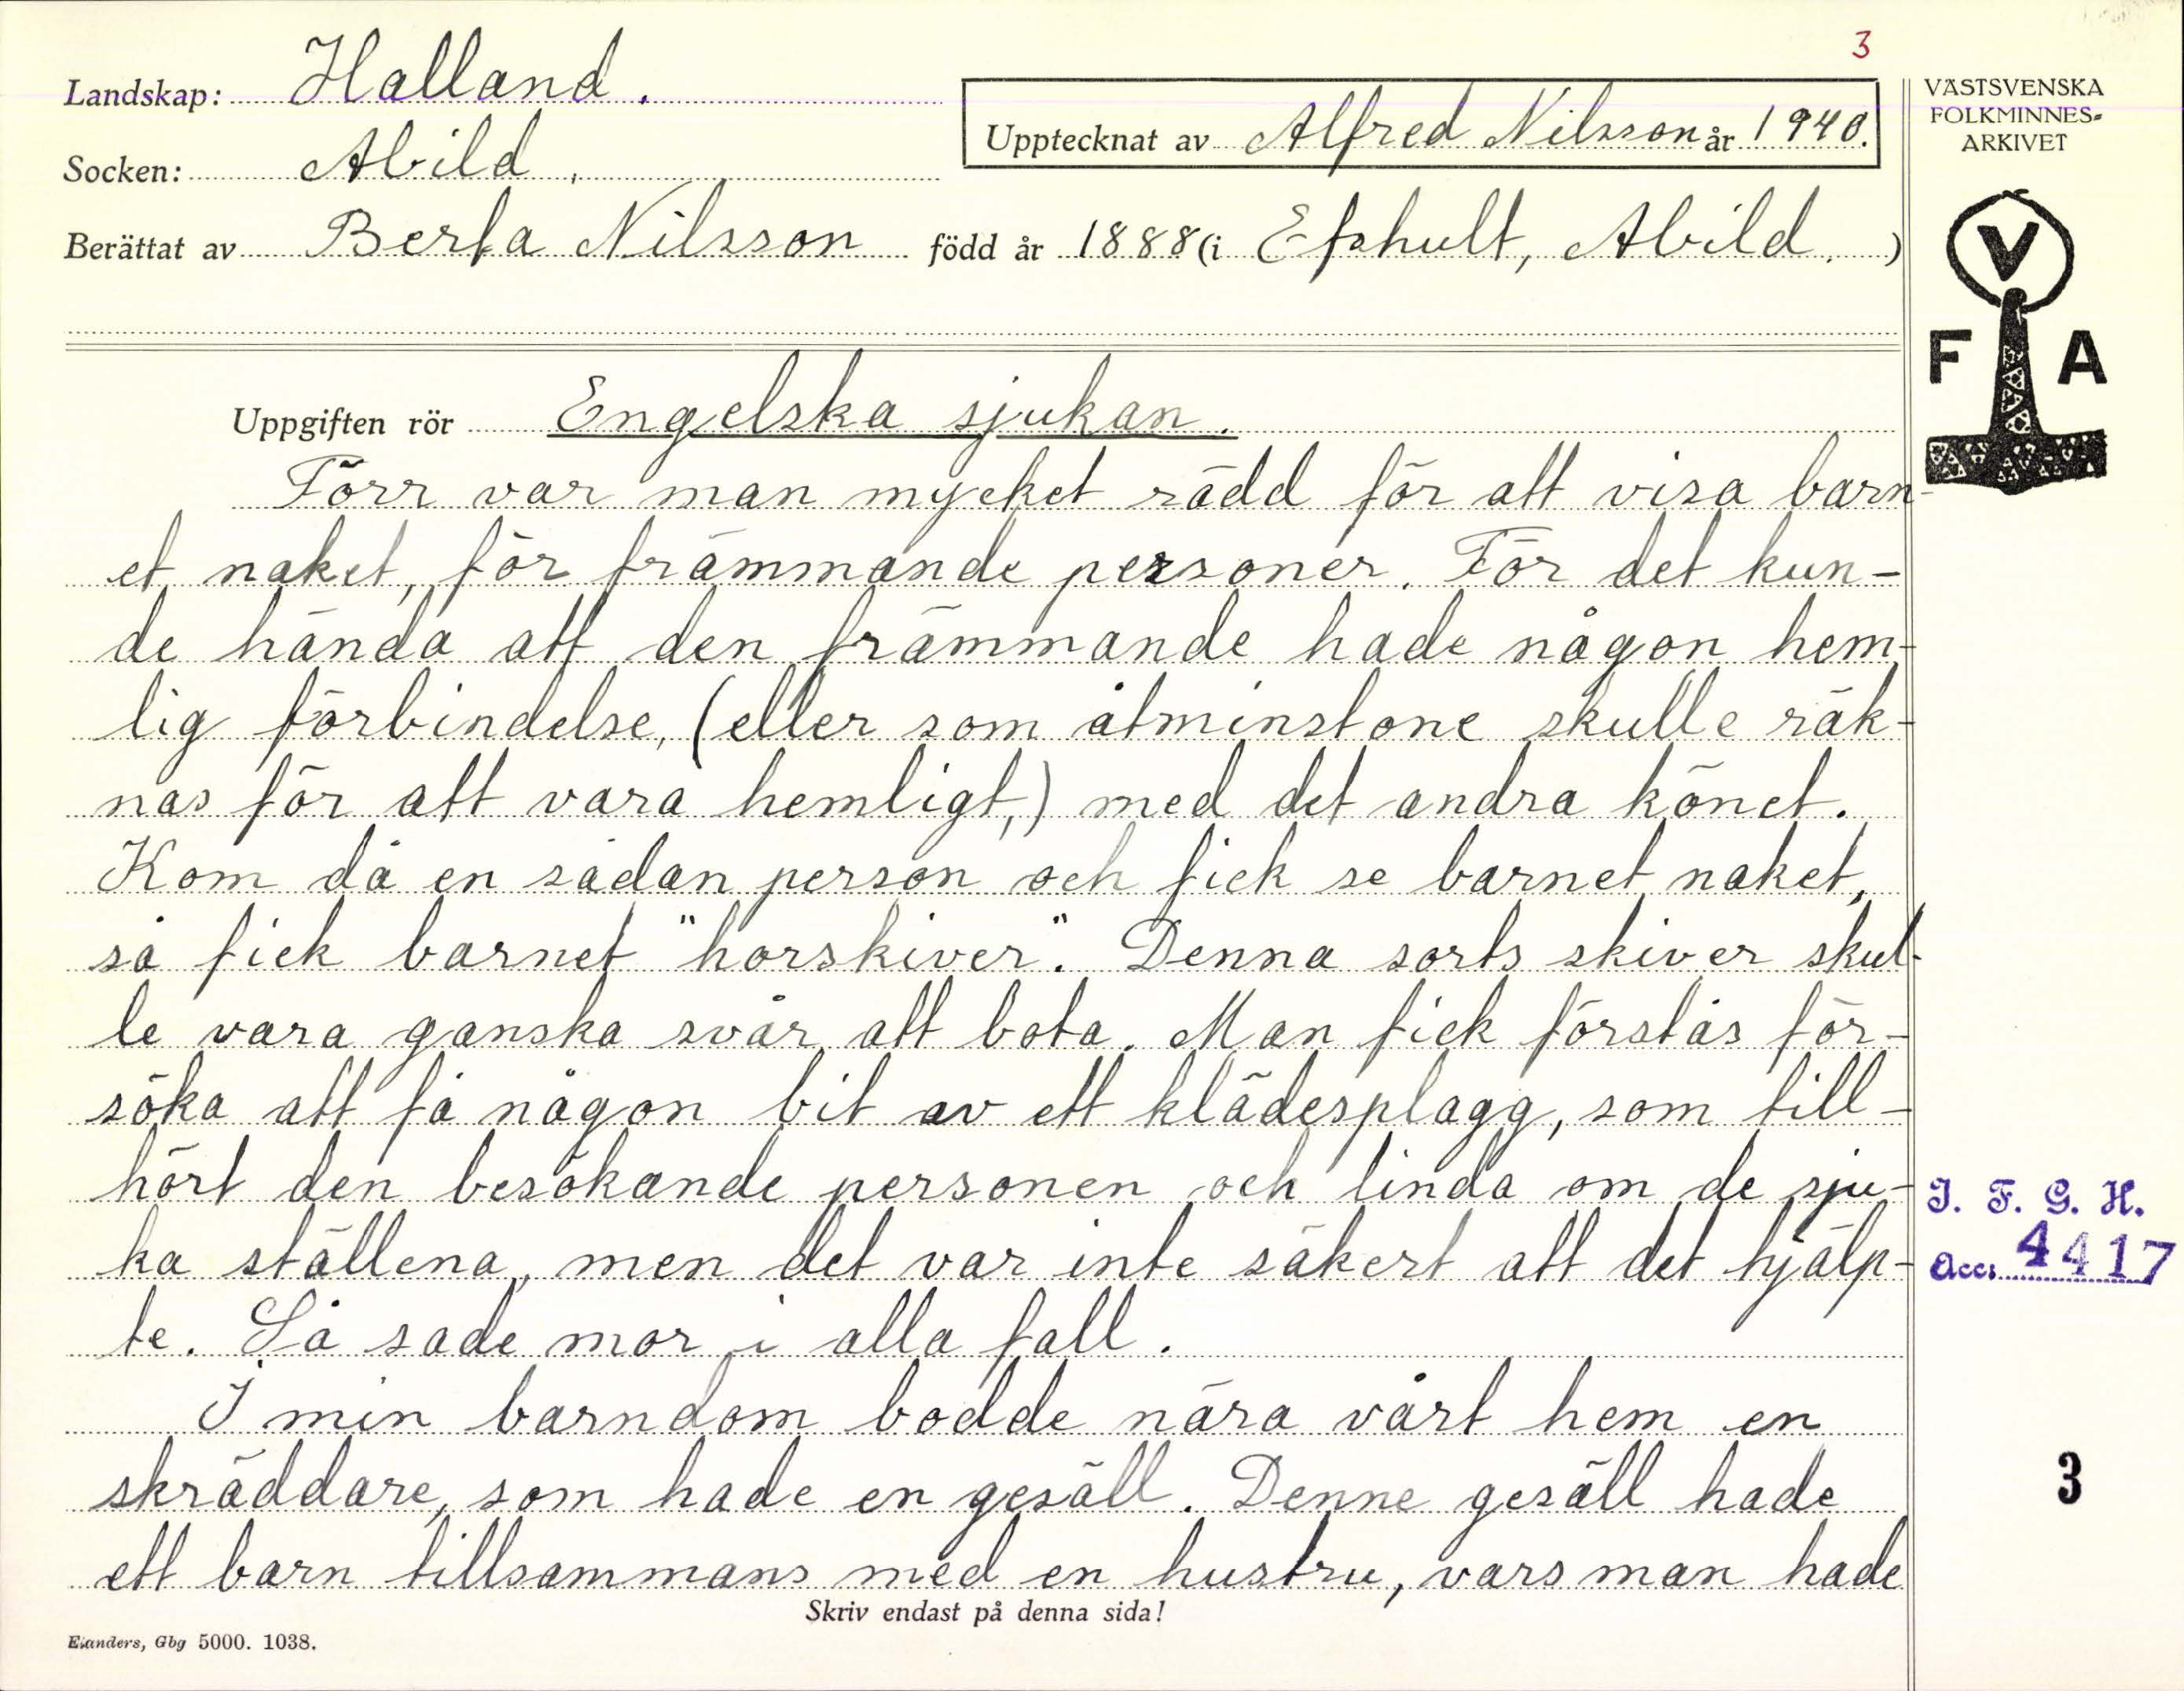 3
Landskap: Halland.
Upptecknat av Alfred Nilsson år 1940.
Socken: Abild.
Berättat av Berta Nilsson född år 1888 (i Efshult, Abild.)
VÄSTSVENSKA
FOLKMINNES-
ARKIVET
V
F A
Uppgiften rör Engelska sjukan.
Förr var man mycket rädd för att visa barn-
et naket, för främmande personer. För det kun-
de hända att den främmande hade någon hem-
lig förbindelse, (eller som åtminstone skulle räk-
nas för att vara hemligt,) med det andra könet.
Kom då en sådan person och fick se barnet naket,
så fick barnet "horskiver". Denna sorts skiver skul-
le vara ganska svår att bota. Man fick förstås för-
söka att få någon bit av ett klädesplagg, som till-
hört den besökande personen och linda om de sju-
ka ställena, men det var inte säkert att det hjälp-
te. Så sade mor i alla fall.
I min barndom bodde nära vårt hem en
skräddare, som hade en gesäll. Denne gesäll hade
ett barn tillsammans med en hustru, vars man hade
I. F. G. H.
Acc. 4417
3
Skriv endast på denna sida!
Elanders, Gbg 5000. 1038.